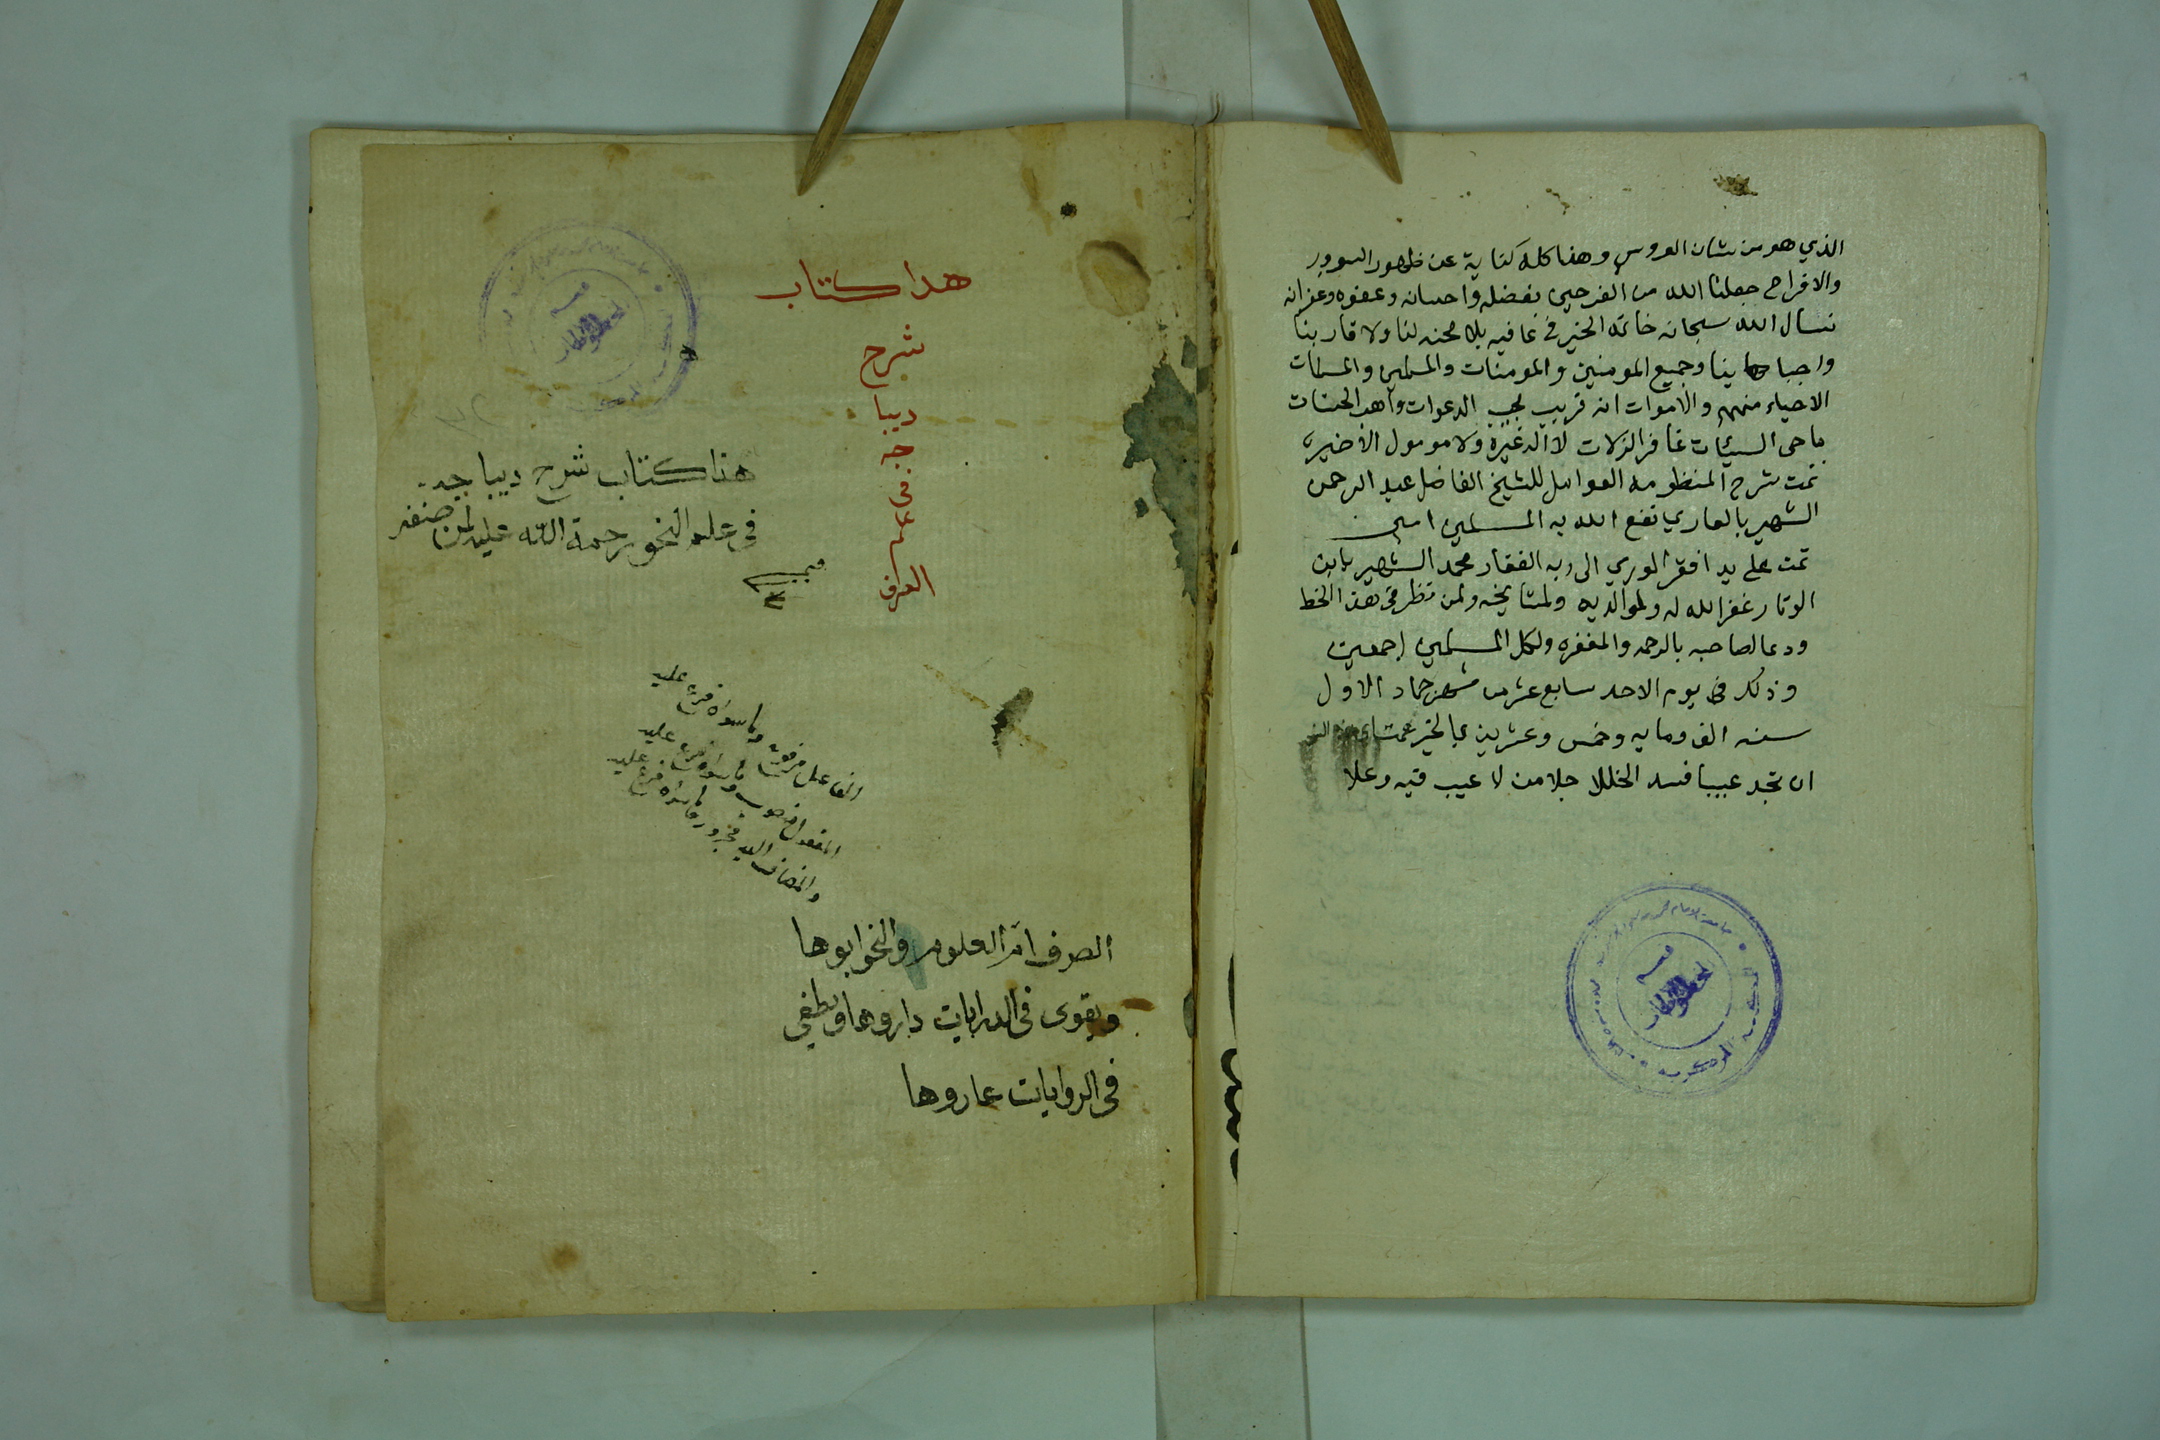 الذي هو من شان العروس وهذا كله كناية عن ظهور السرور
والافراح جعلنا الله من الفرحين بفضله واحسانه وعفوه وغفرانه
نسال الله سبحانه خاتمة الخير في عافيه بلا محنه لنا ولا قاربنا
واحبابنا وجميع المومنين والمومنات والمسلمين والمسلمات
الاحياء منهم والاموات انه قريب مجيب الدعوات واهب الحسنات
ماحى السيئات غافر الزلات لا اله غيره ولا مومول الا خيره
تمت شرح المنظومه العوامل للشيخ الفاضل عبد الرحمن
الشهير بالعاري نفع الله به المسلمين امين
تمت على يد افقر الوري الى ربه الغفار محمد الشهير بابن
الوتار غفر الله له ولوالديه ولمشايخه ولمن نظر في هذا الخط
ودعا لصاحبه بالرحمه والمغفره ولكل المسلمين اجمعين
وذلك في يوم الاحد سابع عشر من شهر جماد الاول
سنه الف ومايه وخمس وعشرين بالخير
ان تجد عيبا فسد الخللا جل من لا عيب فيه وعلا
قسم
المخطوطات
المكتبة المركزية
هدا كتاب
شرح
ديبا
جه
في
علم
الصرف
قسم
المخطوطات
هذا كتاب شرح ديباجه
في علم النحو رحمة الله عليه لمن صنفه
الفاعل مرفوع وما سواه فرع عليه
المفعول منصوب وما سواه فرع عليه
والمضاف اليه مجرور وما سواه فرع عليه
الصرف ام العلوم والنحو ابوها
ويقوى في الدرايات داروها ويطغي
في الروايات عاروها